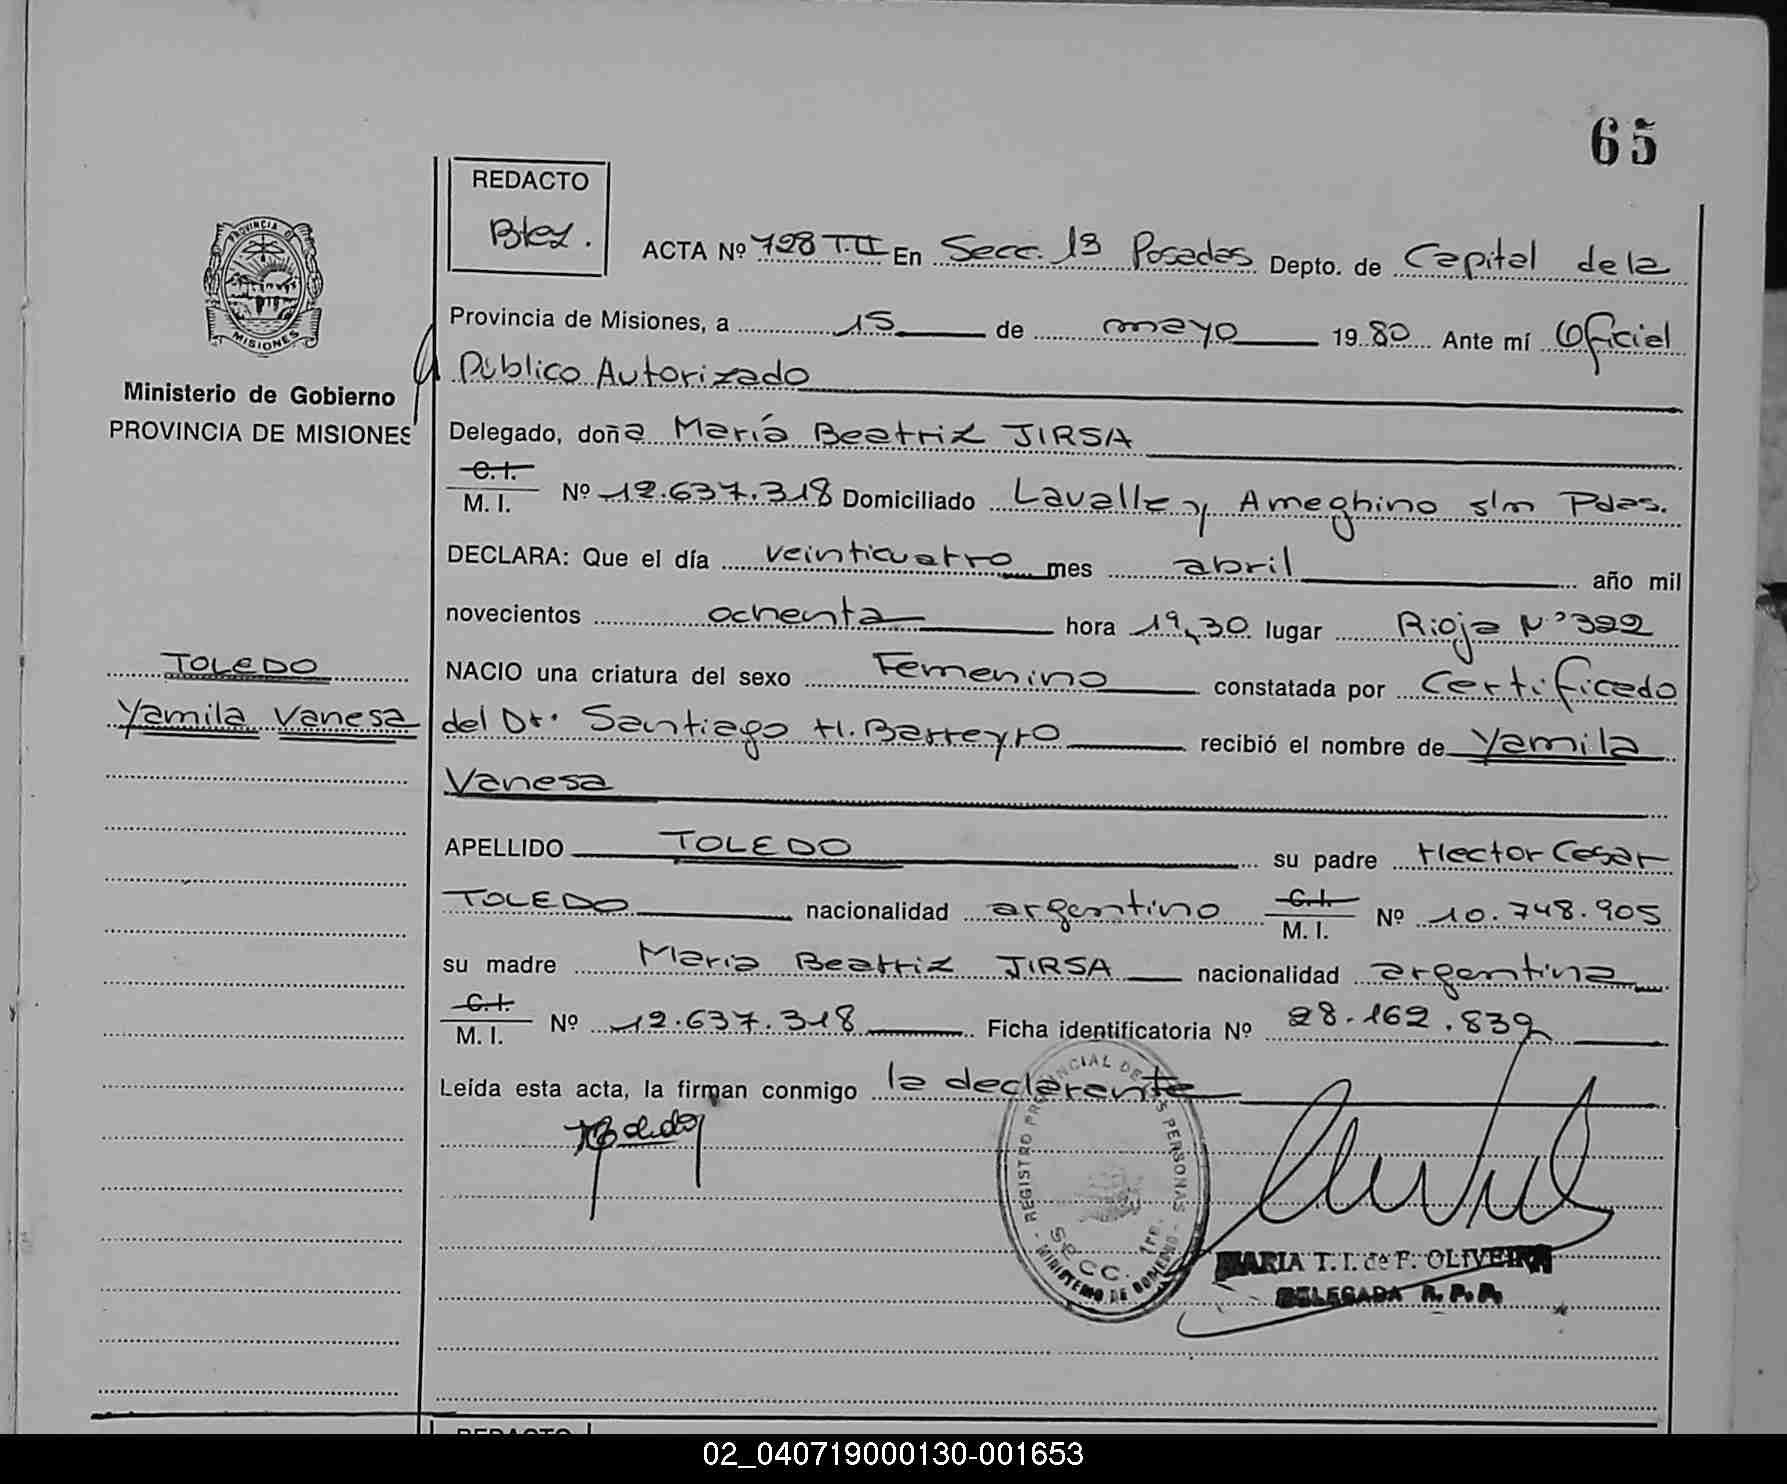 65
REDACTO
PROVINCIA DE
MISIONES
ACTA Nº 728 T.II En Secc. 1ª Posadas Depto. de Capital de la
Provincia de Misiones, a 15 de mayo 1980 Ante mí Oficial
Público Autorizado
Ministerio de Gobierno
PROVINCIA DE MISIONES
Delegado, doña María Beatriz JIRSA
C.I.
M. I. Nº 12.637.318 Domiciliado Lavalle y Ameghino s/n Pdas.
DECLARA: Que el día veinticuatro mes abril año mil
novecientos ochenta hora 19,30 lugar Rioja Nº 392
TOLEDO
Yamila Vanesa
NACIO una criatura del sexo Femenino constatada por Certificado
del Dr. Santiago H. Barreyro recibió el nombre de Yamila
Vanesa
APELLIDO TOLEDO su padre Hector Cesar
TOLEDO nacionalidad argentino C.I. M. I. Nº 10.748.905
su madre Maria Beatriz JIRSA nacionalidad argentina
C.I.
M. I. Nº 12.637.318 Ficha identificatoria Nº 28.162.839
Leída esta acta, la firman conmigo la declarante
REGISTRO PROVINCIAL DE LAS PERSONAS
Secc. 1ra.
MINISTERIO DE GOBIERNO
MARIA T. I. de F. OLIVEIRA
DELEGADA R. P. P.
REDACTO
02_040719000130-001653